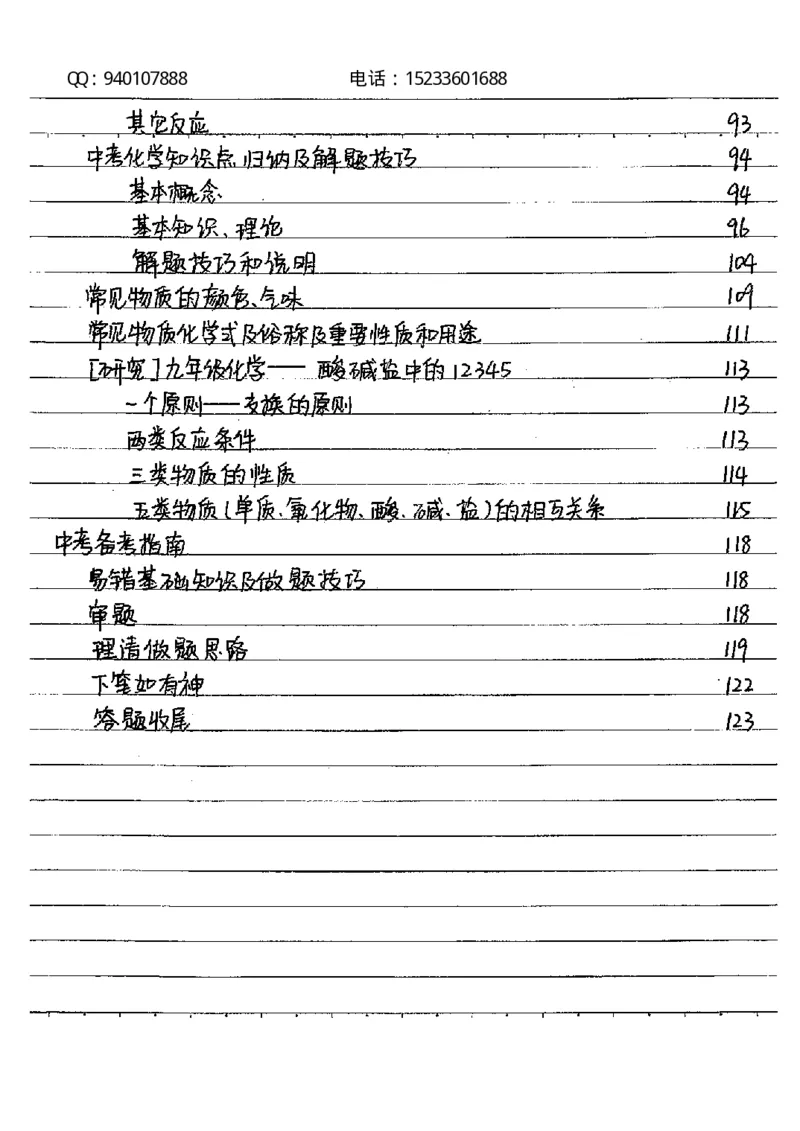 QQ：940107888 电话：15233601688
其它反应 93
中考化学知识点归纳及解题技巧 94
基本概念 94
基本知识、理论 96
解题技巧和说明 104
常见物质的颜色、气味 109
常见物质化学式及俗称及重要性质和用途 111
[研究]九年级化学——酸碱盐中的12345 113
一个原则——交换的原则 113
两类反应条件 113
三类物质的性质 114
五类物质(单质、氧化物、酸、碱、盐)的相互关系 115
中考备考指南 118
易错基础知识及做题技巧 118
审题 118
理清做题思路 119
下笔如有神 122
答题收尾 123